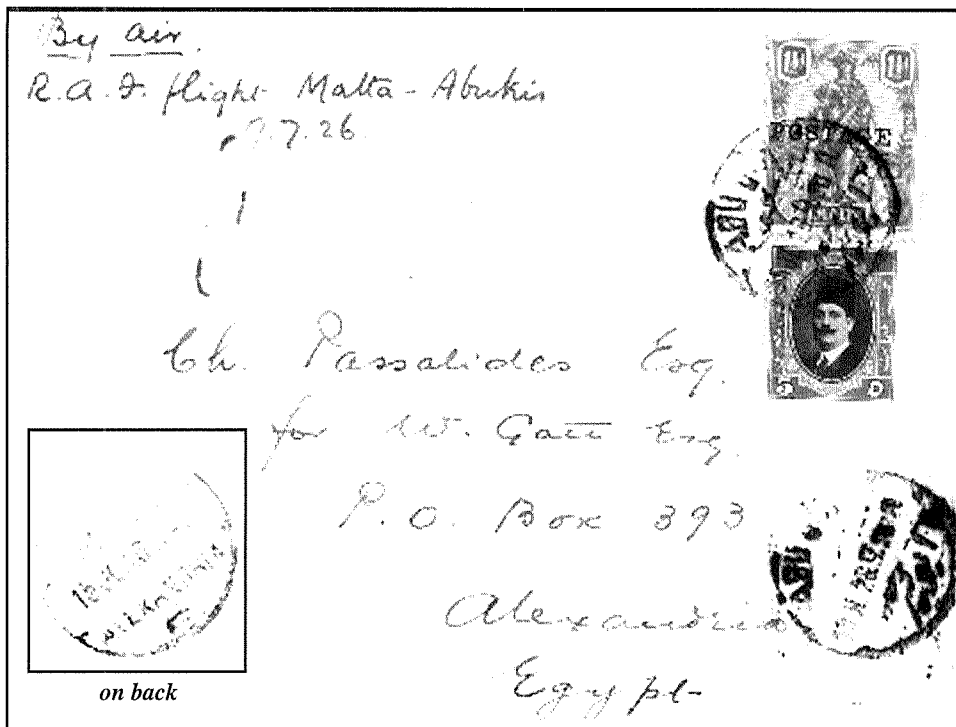 By air.
R.A.F. flight Malta - Abukir
7.7.26
POSTAGE
Ch. Passalides Esq.
for W. Gatt Esq.
P.O. Box 393
Alexandria
Egypt
on back